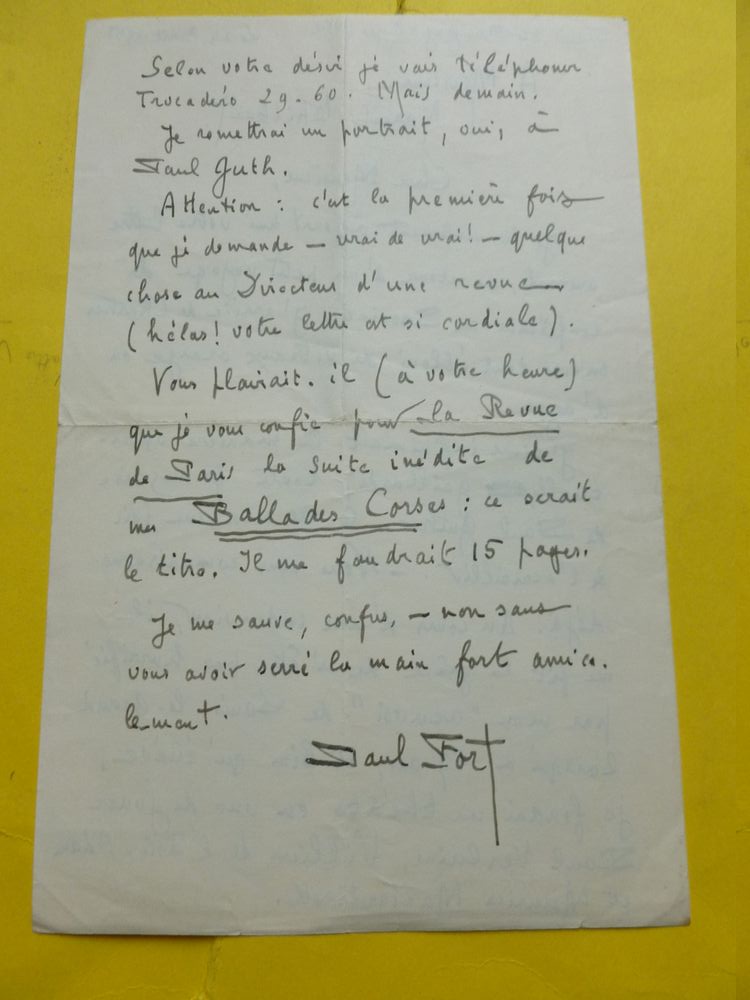 Selon votre désir je vais téléphoner
Trocadéro 29-60. Mais demain.
Je remettrai un portrait, oui, à
Paul Guth.
Attention : c'est la première fois
que je demande — vrai de vrai! — quelque
chose au Directeur d'une revue
(hélas! votre lettre est si cordiale).
Vous plairait-il (à votre heure)
que je vous confie pour la Revue
de Paris la suite inédite de
mes Ballades Corses : ce serait
le titre. Il me faudrait 15 pages.
Je me sauve, confus, — non sans
vous avoir serré la main fort amica-
lement.
Paul Fort